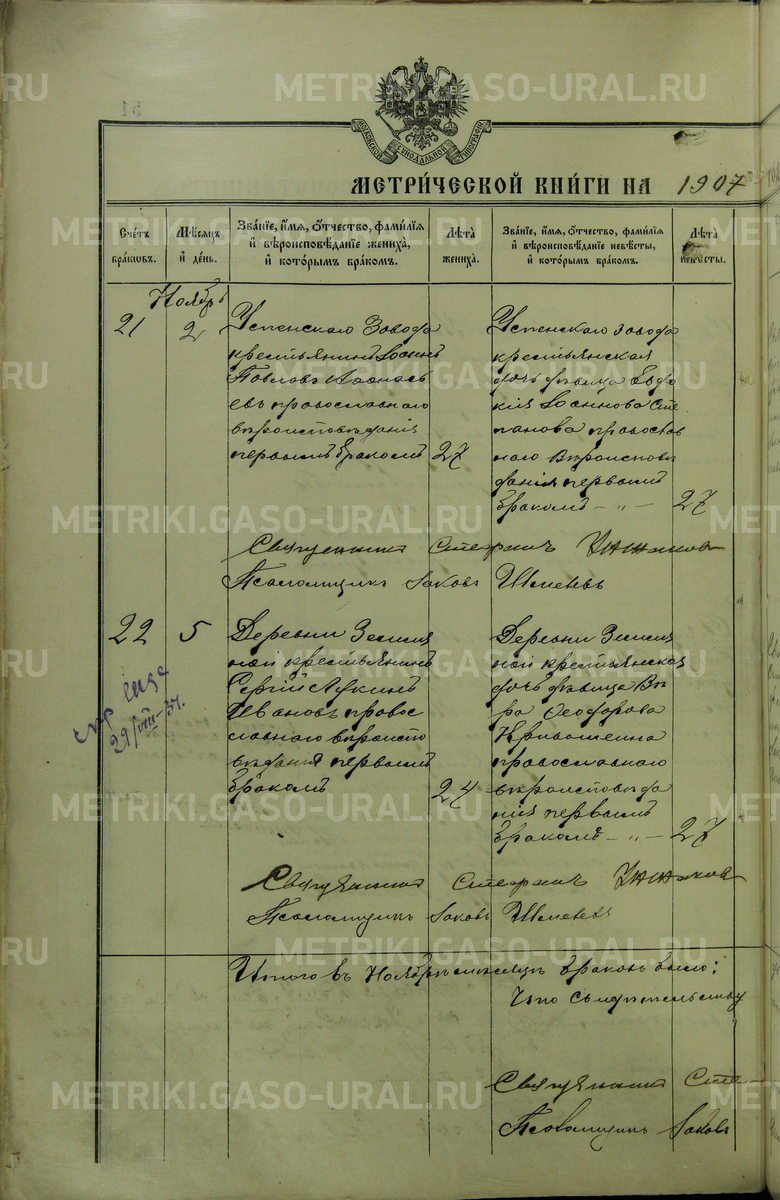 МОСКОВСКОЙ СѴНОДАЛЬНОЙ ТИПОГРАФІИ
МЕТРИ́ЧЕСКОЙ КНИ́ГИ НА 1907
Сче́тъ бра́ковъ.
Мѣ́сяцъ и҆ де́нь.
Зва́нїе, и҆́мѧ, ѻ҆́тчество, фами́лїѧ и҆ вѣроисповѣ́данїе жениха̀, и҆ кото́рымъ бра́комъ.
Лѣ́та жениха̀.
Зва́нїе, и҆́мѧ, ѻ҆́тчество, фами́лїѧ и҆ вѣроисповѣ́данїе невѣ́сты, и҆ кото́рымъ бра́комъ.
Лѣ́та невѣ́сты.
Ноябрь
21
2
Успенскаго Завода
крестьянинъ Іоаннъ
Павловъ Аѳанась
евъ православнаго
вѣроисповѣданія
первымъ бракомъ
27
Успенскаго завода
крестьянская
дочь дѣвица Евдо
кія Іоаннова Сте
панова православ
наго вѣроисповѣ
данія первымъ
бракомъ — „ —
27
Священникъ Стефанъ
Псаломщикъ Іаковъ
22
5
Деревни Земля
ной крестьянинъ
Сергій Лукинъ
Ивановъ правос
лавнаго вѣроиспо
вѣданія первымъ
бракомъ
24
Деревни Земля
ной крестьянская
дочь дѣвица Вѣ
ра Ѳеодорова
Кривошеина
православнаго
вѣроисповѣда
нія первымъ
бракомъ — „ —
27
29/VIII–51.
Священникъ Стефанъ
Псаломщикъ Іаковъ
Итого въ Ноябрѣ мѣсяцѣ браковъ было:
Что свидѣтельству
Священникъ Сте
Псаломщикъ Іаковъ
METRIKI.GASO-URAL.RU